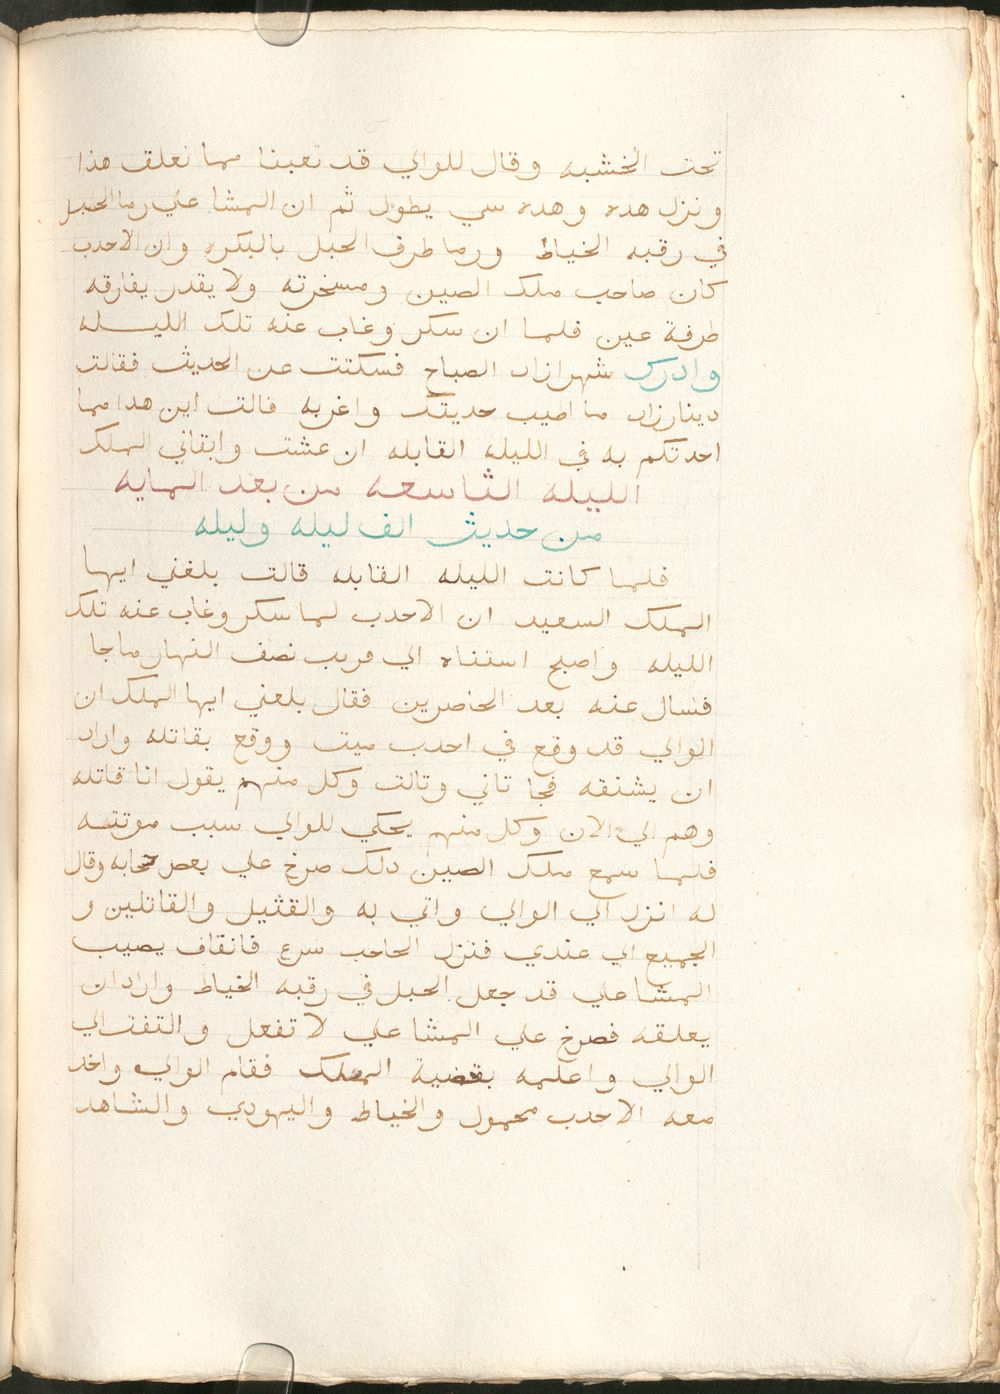 تحت الخشبه وقال للوالي قد تعبنا مما نعلق هذا
وننزل هده وهده سي يطول ثم ان المشاعلي رما الحبل
في رقبه الخياط ورما طرف الحبل بالبكره وان الاحدب
كان صاحب ملك الصين ومسخرته ولا يقدر يفارقه
طرفة عين فلما ان سكر وغاب عنه تلك الليله
وادرك شهرازاد الصباح فسكتت عن الحديث فقالت
دينارزاد ما اطيب حديتك واغربه قالت اين هدا مما
احدتكم به في الليله القابله ان عشت وابقاني الملك
الليله التاسعه من بعد المايه
من حديث الف ليله وليله
فلما كانت الليله القابله قالت بلغني ايها
الملك السعيد ان الاحدب لما سكر وغاب عنه تلك
الليله واصبح استناه الي قريب نصف النهار ما جا
فسال عنه بعد الحاضرين فقال بلغني ايها الملك ان
الوالي قد وقع في احدب ميت ووقع بقاتله واراد
ان يشنقه فجا تاني وتالت وكل منهم يقول انا قاتله
وهم الي الان وكل منهم يحكي للوالي سبب موتته
فلما سمع ملك الصين دلك صرخ علي بعص حجابه وقال
له انزل الي الوالي واتي به والقتيل والقاتلين و
الجميع الي عندي فنزل الحاجب سرع فانقاف يصيب
المشاعلي قد جعل الحبل في رقبه الخياط واراد ان
يعلقه فصرخ علي المشاعلي لا تفعل والتفت الي
الوالي واعلمه بقضية الملك فقام الوالي واخد
معه الاحدب محمول والخياط واليهودي والشاهد